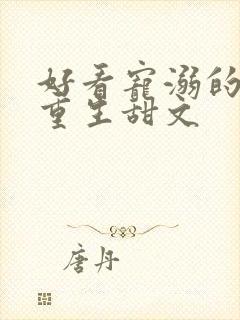 好看宠溺的
重生甜文
唐丹